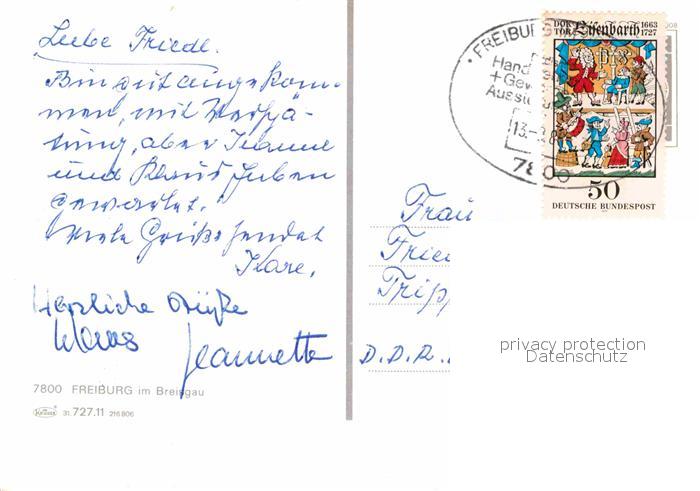 Liebe Friedl.
Bin gut angekom-
men, mit Verspä-
tung, aber
und Klaus haben
gewartet.
Viele Grüße sendet
Kläre.
Herzliche Grüße
Klaus
Jeannette
7800 FREIBURG im Breisgau
Krüger 31.727.11 216806
FREIBURG
Hand
+Gew
Ausste
13.-
7800
DOKTOR Eisenbarth 1663 1727
50
DEUTSCHE BUNDESPOST
Frau
Frie
Tripp
D.D.R.
privacy protection
Datenschutz